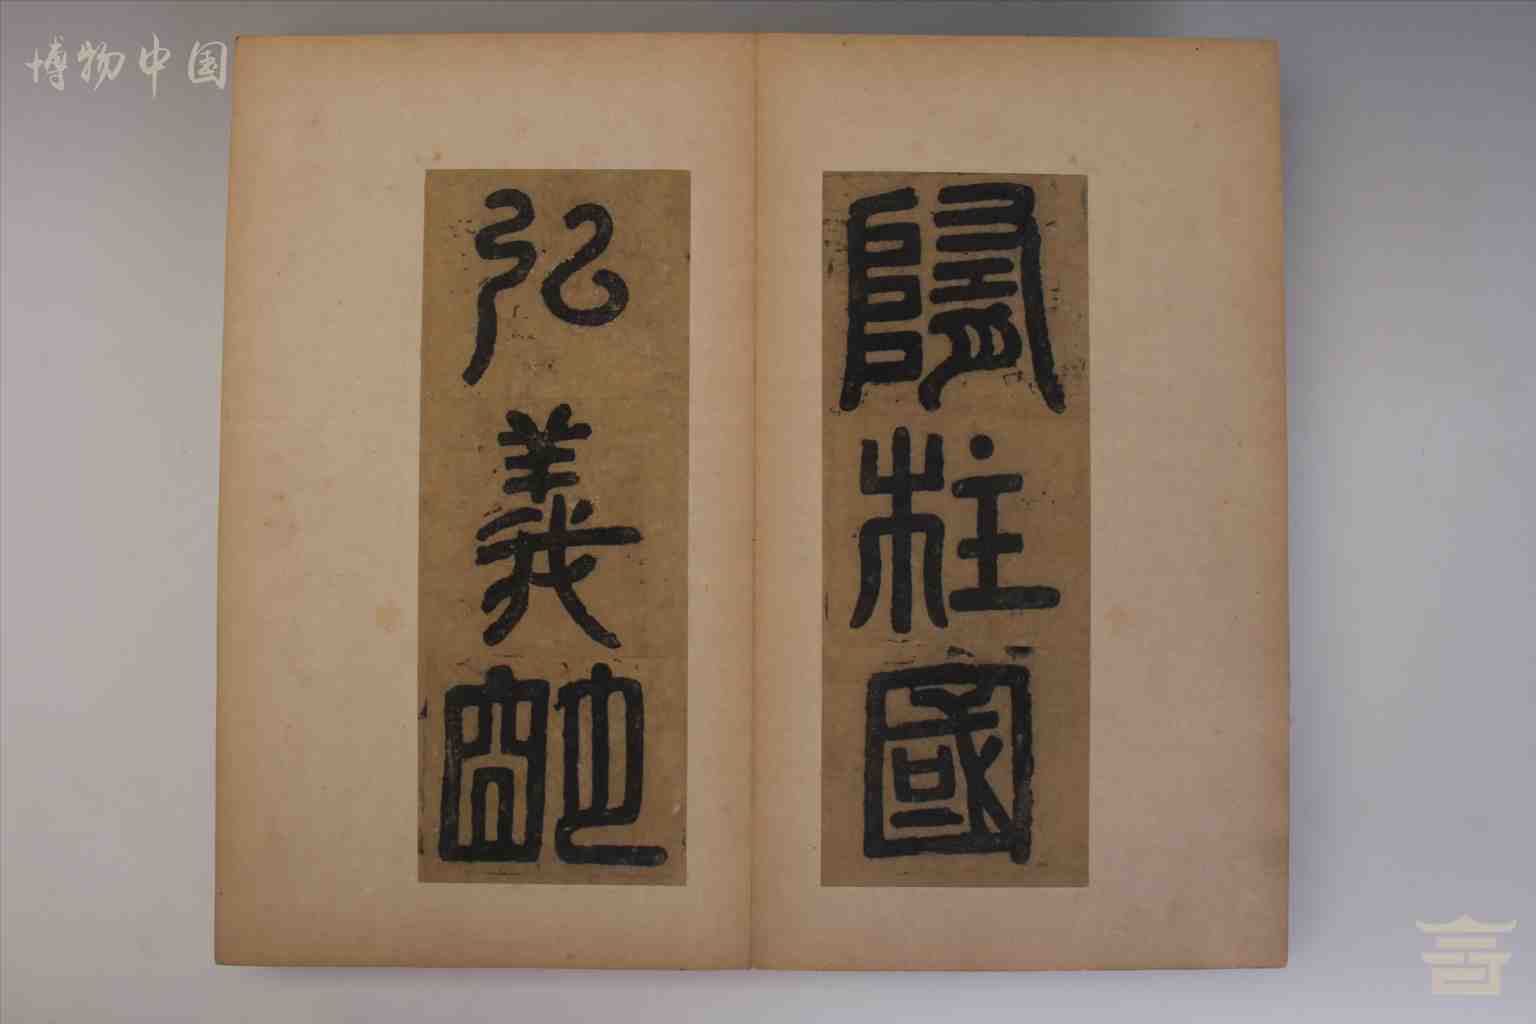 博物中国
隋柱國
弘義明